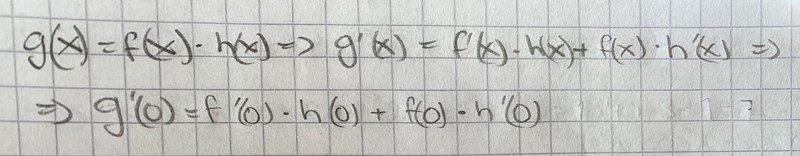 g(x) = f(x) · h(x) => g'(x) = f'(x) · h(x) + f(x) · h'(x) =>
=> g'(0) = f'(0) · h(0) + f(0) · h'(0)